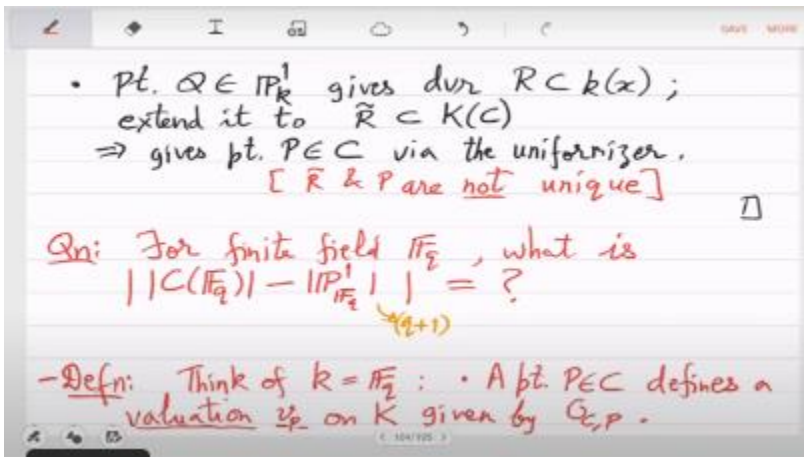 SAVE MORE
• Pt. Q ∈ ℙ¹ₖ gives dvr R ⊂ k(x) ;
extend it to R̃ ⊂ K(C)
⇒ gives pt. P ∈ C via the uniformizer.
[ R̃ & P are not unique ]
□
Qn: For finite field 𝔽_q , what is
| |C(𝔽_q)| − |ℙ¹_{𝔽_q}| | = ?
↘(q+1)
- Defn: Think of k = 𝔽_q : • A pt. P∈C defines a
valuation v_P on K given by 𝒪_{C,P} .